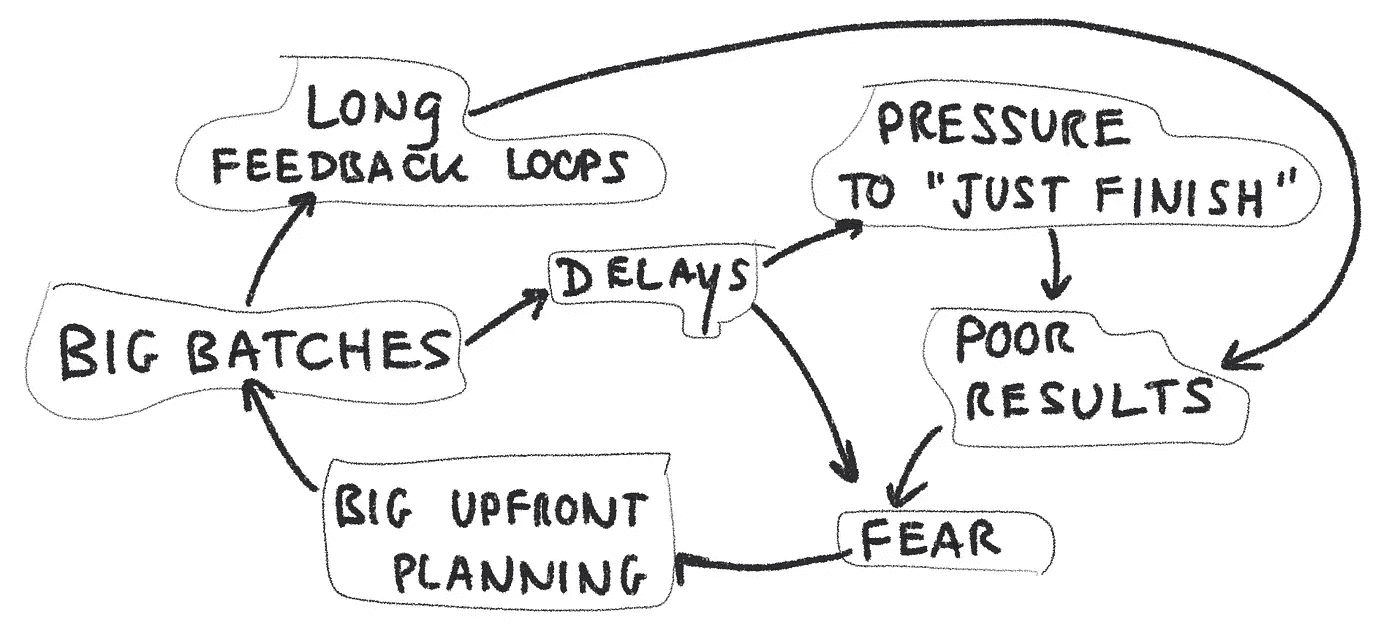 LONG
FEEDBACK LOOPS
PRESSURE
TO "JUST FINISH"
DELAYS
BIG BATCHES
POOR
RESULTS
BIG UPFRONT
PLANNING
FEAR